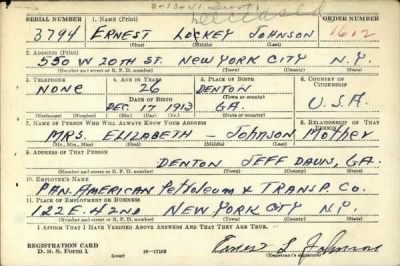 SERIAL NUMBER 1. NAME (Print) Deceased ORDER NUMBER
3794 ERNEST LOCKEY JOHNSON 1612
(First) (Middle) (Last)
2. ADDRESS (Print)
550 W 20TH ST. NEW YORK CITY N.Y.
(Number and street or R. F. D. number) (Town) (County) (State)
3. TELEPHONE 4. AGE IN YEARS 5. PLACE OF BIRTH 6. COUNTRY OF CITIZENSHIP
NONE 26 DENTON
DATE OF BIRTH (Town or county)
DEC. 17 1913 GA. U.S.A.
(Mo.) (Day) (Yr.) (State or country)
7. NAME OF PERSON WHO WILL ALWAYS KNOW YOUR ADDRESS 8. RELATIONSHIP OF THAT PERSON
MRS. ELIZABETH - JOHNSON Mother
(Mr., Mrs., Miss) (First) (Middle) (Last)
9. ADDRESS OF THAT PERSON
DENTON JEFF DAVIS, GA.
(Number and street or R. F. D. number) (Town) (County) (State)
10. EMPLOYER'S NAME
PAN-AMERICAN Petroleum & TRANSP. Co.
11. PLACE OF EMPLOYMENT OR BUSINESS
122 E. 42ND NEW YORK CITY N.Y.
(Number and street or R. F. D. number) (Town) (County) (State)
I AFFIRM THAT I HAVE VERIFIED ABOVE ANSWERS AND THAT THEY ARE TRUE.
REGISTRATION CARD
D. S. S. Form 1 (over) Ernest L Johnson
(Registrant's signature)